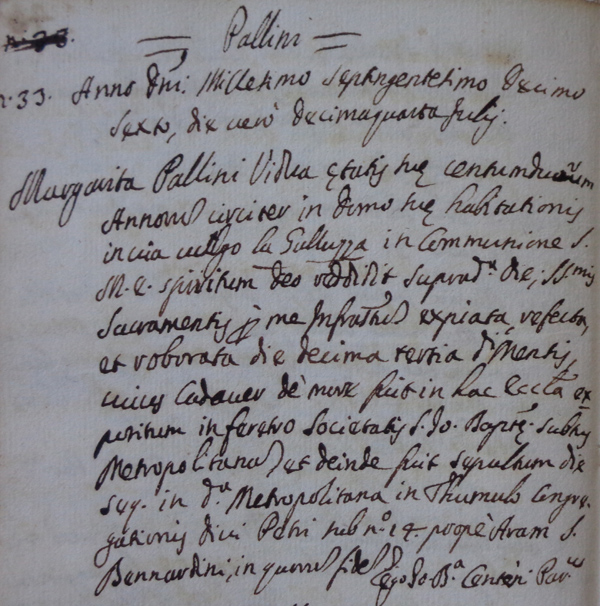 Pallini
n. 33. Anno Dni: Millesimo Septingentesimo Decimo
Sexto, die verò decimaquarta Julij.
Margarita Pallini Vidua ętatis suę centumduorum
Annorum circiter in domo suę habitationis
in via vulgo la Galluzza in Communione S.
M. E. spiritum Deo reddidit suprad.a die; SS.mis
Sacramentis p me Infrattum expiata, refecta,
et roborata die decima tertia d.i Mensis,
cuius Cadaver de more fuit in hac Eccl.a ex
positum in feretro Societatis S. Jo. Baptę. subtus
Metropolitanam et deinde fuit sepultum die
seq. in d.a Metropolitana in Thumulo Congre-
gationis divi Petri sub n.o 14. propè Aram S.
Bernardini, in quorum fidem
Ego Jo. B.a Par.us